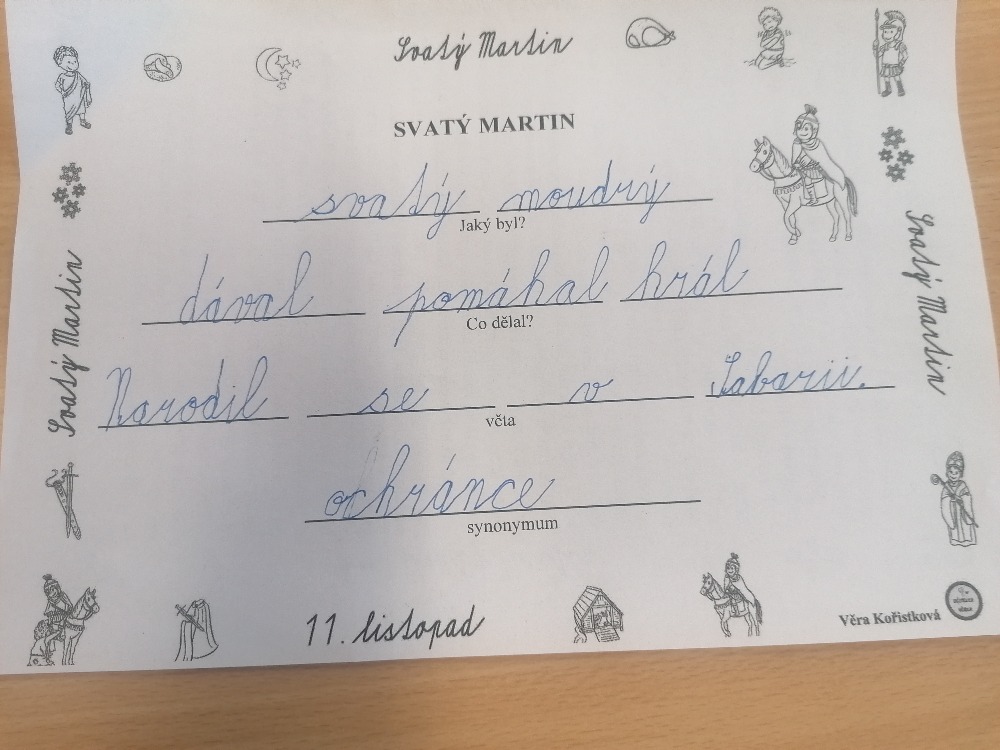 Svatý Martin
SVATÝ MARTIN
svatý moudrý
Jaký byl?
dával pomáhal hrál
Co dělal?
Narodil se v Sabarii.
včta
ochránce
synonymum
Svatý Martin
Svatý Martin
11. listopad
Věra Kořistková